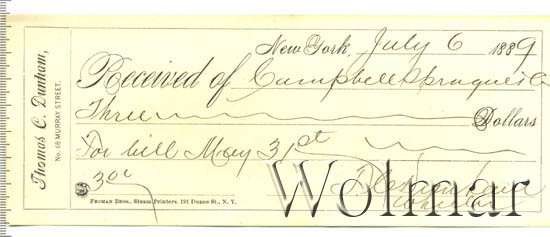 Thomas C. Dunham,
No. 68 MURRAY STREET.
New York, July 6 1889
Received of Campbell Sprague & Co
Three Dollars
For bill May 31st
$ 300
FROMAN BROS., Steam Printers, 191 Duane St., N. Y.
Wolmar